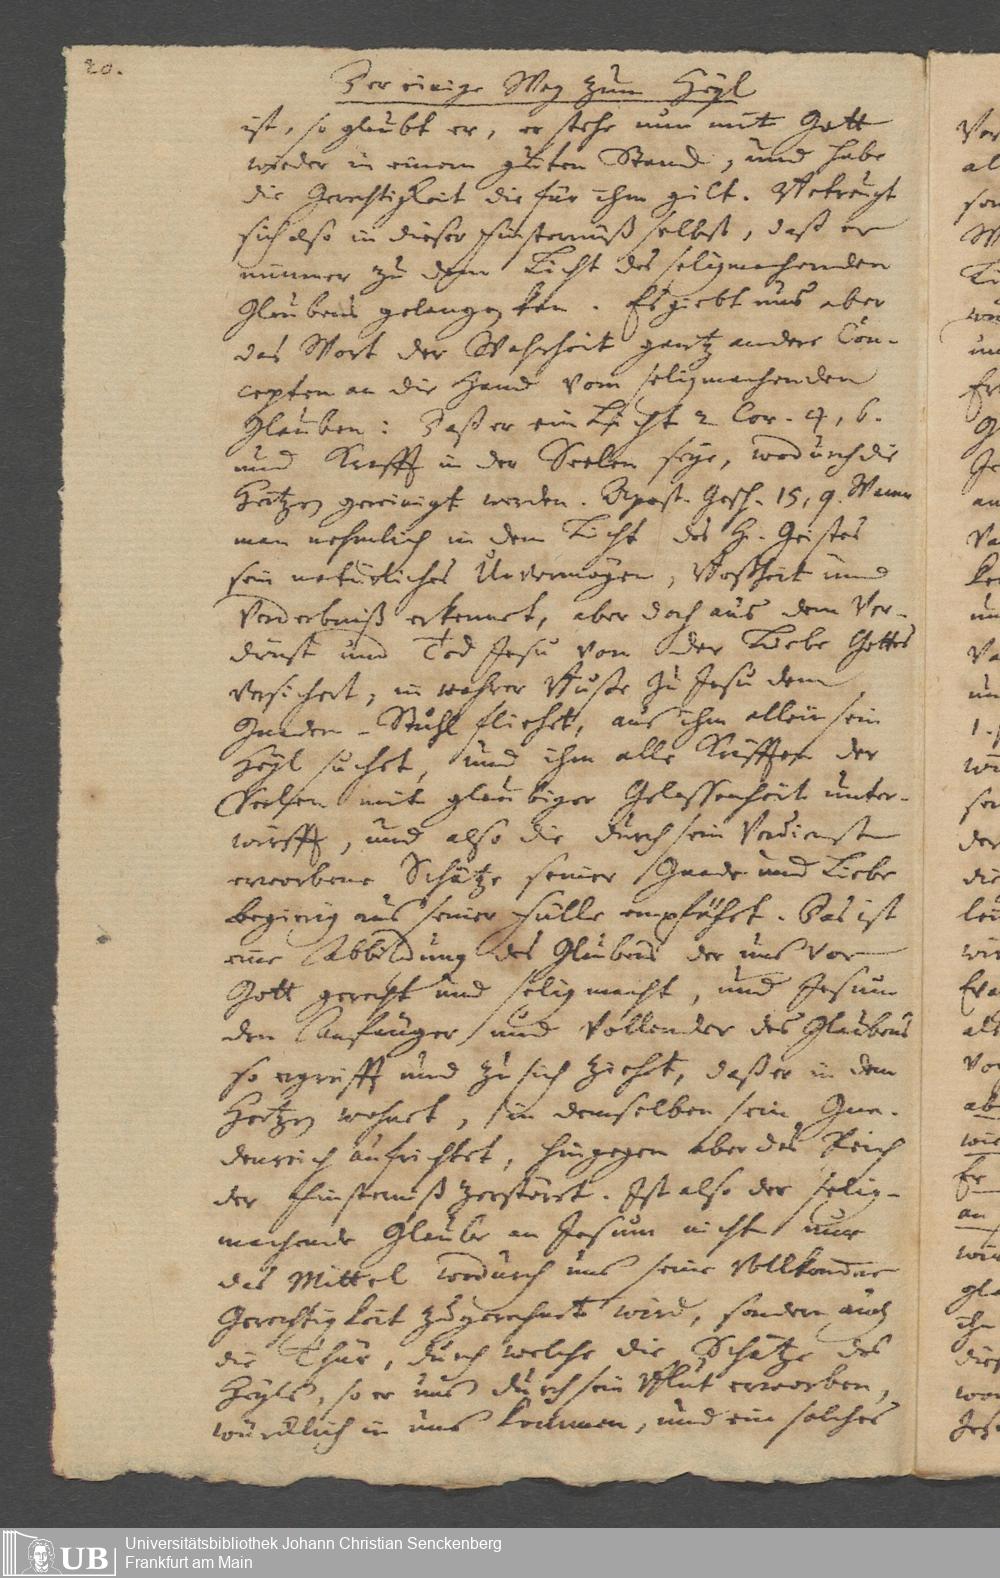 20.
Der einige Weg zum Heyl
ist, so glaubt er, er stehe nun mit Gott
wieder in einem guten Stand, und habe
die Gerechtigkeit die für ihm gilt. Betreugt
sich also in dieser Finsternüß selbst, daß er
nimmer zu dem Licht des seligmachenden
Glaubens gelangen kan. Es giebt uns aber
das Wort der Wahrheit gantz andere Con-
cepten an die Hand vom seligmachenden
Glauben: Daß er ein Licht 2 Cor. 4, 6.
und Krafft in der Seelen seye, wodurch die
Hertzen gereinigt werden. Apost. Gesch. 15, 9. Wann
man nehmlich in dem Licht des H. Geistes
sein natürliches Unvermögen, Boßheit und
Verderbniß erkennet, aber doch aus dem Ver-
dinst und Tod Jesu von der Liebe Gottes
versichert, in wahrer Buße zu Jesu dem
Gnaden-Stuhl fliehet, aus ihm allein sein
Heyl suchet, und ihm alle Kräfften der
Seelen mit glaubiger Gelassenheit unter-
wirfft, und also die durch sein Verdienst
erworbene Schätze seiner Gnade und Liebe
begierig aus seiner Fülle empfähet. Das ist
eine Abbildung des Glaubens der uns vor
Gott gerecht und selig macht, und Jesum
den Anfänger und Vollender des Glaubens
so ergreifft und zu sich ziehet, daß er in dem
Hertzen wohnet, in demselben sein Gna-
denreich aufrichtet, hingegen aber das Reich
der Finsterniß zerstöret. Ist also der selig-
machende Glaube an Jesum nicht nur
das Mittel wodurch uns seine Vollkommene
Gerechtigkeit zugerechnet wird, sondern auch
die Thür, durch welche die Schätze des
Heyls, so er uns durch sein Blut erworben,
würcklich in uns kommen, und ein solches
Universitätsbibliothek Johann Christian Senckenberg
Frankfurt am Main
UB